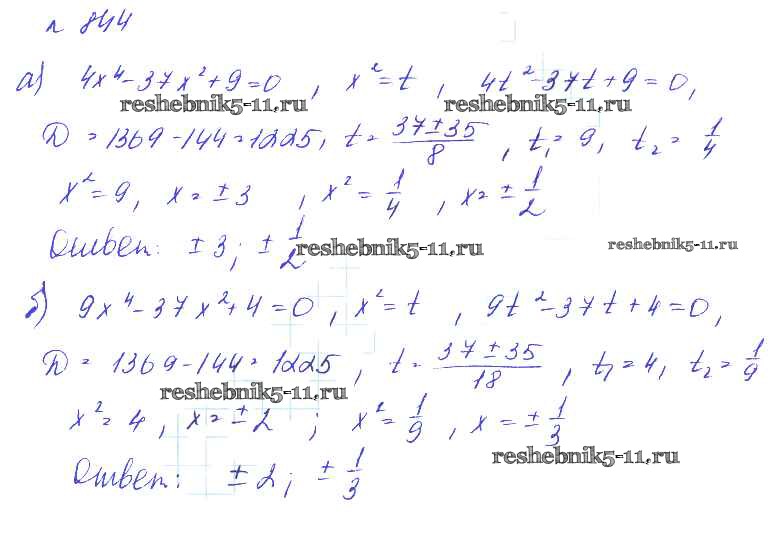 n 844
а) 4x⁴ - 37x² + 9 = 0, x² = t, 4t² - 37t + 9 = 0,
reshebnik5-11.ru reshebnik5-11.ru
D = 1369 - 144 = 1225, t = (37 ± 35)/8, t₁ = 9, t₂ = 1/4
x² = 9, x = ± 3, x² = 1/4, x = ± 1/2
Ответ: ± 3; ± 1/2
reshebnik5-11.ru reshebnik5-11.ru
б) 9x⁴ - 37x² + 4 = 0, x² = t, 9t² - 37t + 4 = 0,
D = 1369 - 144 = 1225, t = (37 ± 35)/18, t₁ = 4, t₂ = 1/9
reshebnik5-11.ru
x² = 4, x = ± 2; x² = 1/9, x = ± 1/3
reshebnik5-11.ru
Ответ: ± 2; ± 1/3